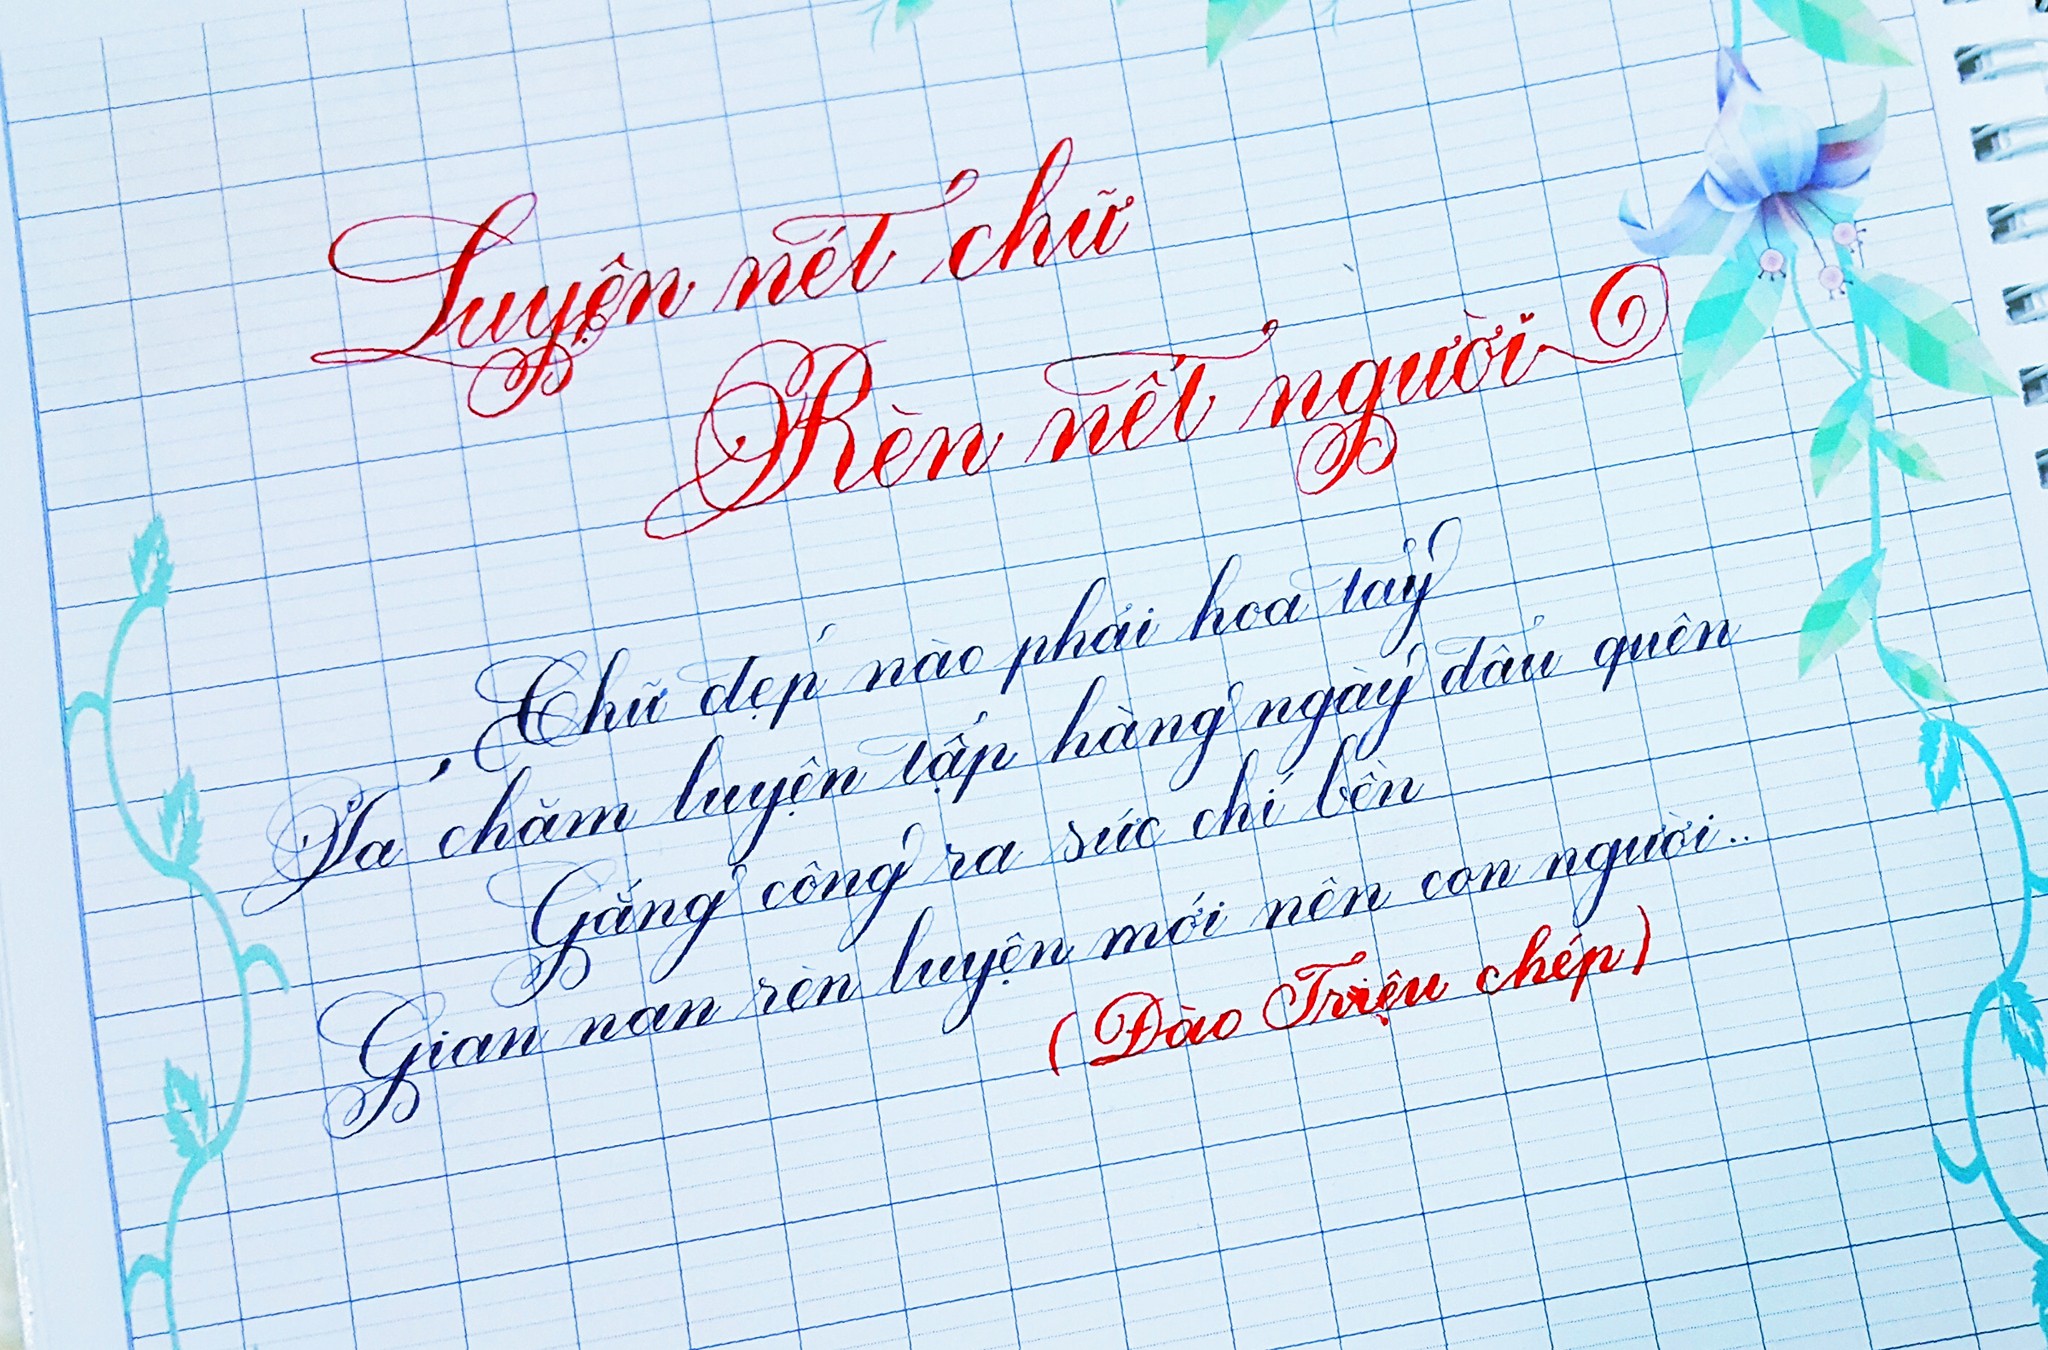 Luyện nét chữ
Rèn nết người
Chữ đẹp nào phải hoa tay
Ta chăm luyện tập hàng ngày đấu quên
Gắng công ra sức chí bền
Gian nan rèn luyện mới nên con người..
(Đào Triệu chép)